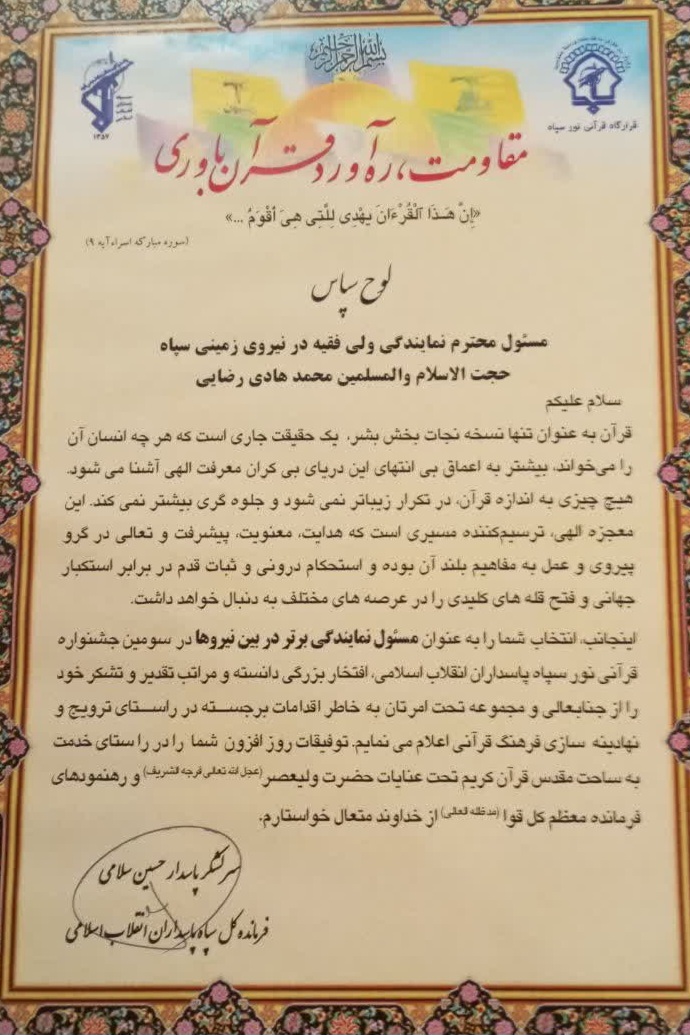 بسم الله الرحمن الرحیم
قرارگاه قرآنی نور سپاه
۱۳۵۷
مقاومت، ره‌آورد قرآن باوری
«إِنَّ هَـٰذَا ٱلْقُرْءَانَ يِهْدِى لِلَّتِى هِىَ أَقْوَمُ ...»
(سوره مبارکه اسراء آیه ۹)
لوح سپاس
مسئول محترم نمایندگی ولی فقیه در نیروی زمینی سپاه
حجت الاسلام والمسلمین محمد هادی رضایی
سلام علیکم
قرآن به عنوان تنها نسخه نجات بخش بشر، یک حقیقت جاری است که هر چه انسان آن
را می‌خواند، بیشتر به اعماق بی انتهای این دریای بی کران معرفت الهی آشنا می شود.
هیچ چیزی به اندازه قرآن، در تکرار زیباتر نمی شود و جلوه گری بیشتر نمی کند. این
معجزه الهی، ترسیم‌کننده مسیری است که هدایت، معنویت، پیشرفت و تعالی در گرو
پیروی و عمل به مفاهیم بلند آن بوده و استحکام درونی و ثبات قدم در برابر استکبار
جهانی و فتح قله های کلیدی را در عرصه های مختلف به دنبال خواهد داشت.
اینجانب، انتخاب شما را به عنوان مسئول نمایندگی برتر در بین نیروها در سومین جشنواره
قرآنی نور سپاه پاسداران انقلاب اسلامی، افتخار بزرگی دانسته و مراتب تقدیر و تشکر خود
را از جنابعالی و مجموعه تحت امرتان به خاطر اقدامات برجسته در راستای ترویج و
نهادینه سازی فرهنگ قرآنی اعلام می نمایم. توفیقات روز افزون شما را در را ستای خدمت
به ساحت مقدس قرآن کریم تحت عنایات حضرت ولیعصر(عجل الله تعالی فرجه الشریف) و رهنمودهای
فرمانده معظم کل قوا (مدظله العالی) از خداوند متعال خواستارم.
سرلشکر پاسدار حسین سلامی
فرمانده کل سپاه پاسداران انقلاب اسلامی